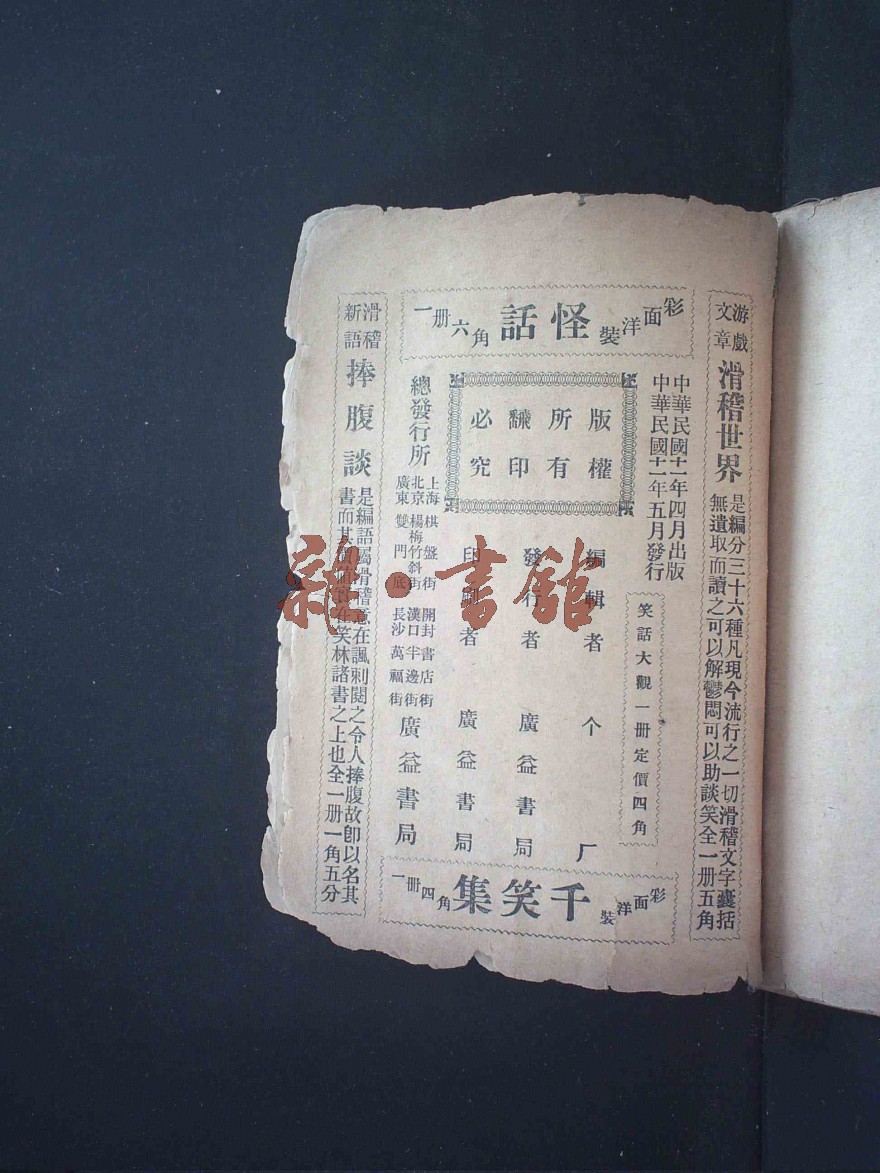 游戲文章
滑稽世界
是編分三十六種凡現今流行之一切滑稽文字囊括
無遺取而讀之可以解鬱悶可以助談笑全一册五角
彩面洋裝
怪話
一册六角
中華民國十一年四月出版
中華民國十一年五月發行
笑話大觀一册定價四角
版權
所有
翻印
必究
編輯者 个厂
發行者 廣益書局
印 者 廣益書局
總發行所
上海棋盤街
北京楊梅竹斜街
廣東雙門底
開封書店街
漢口半邊街
長沙萬福街
廣益書局
彩面洋裝
千笑集
一册四角
滑稽新語
捧腹談
是編語屬滑稽意在諷刺閱之令人捧腹故卽以名其
書而其 在笑林諸書之上也全一册一角五分
雜·書館